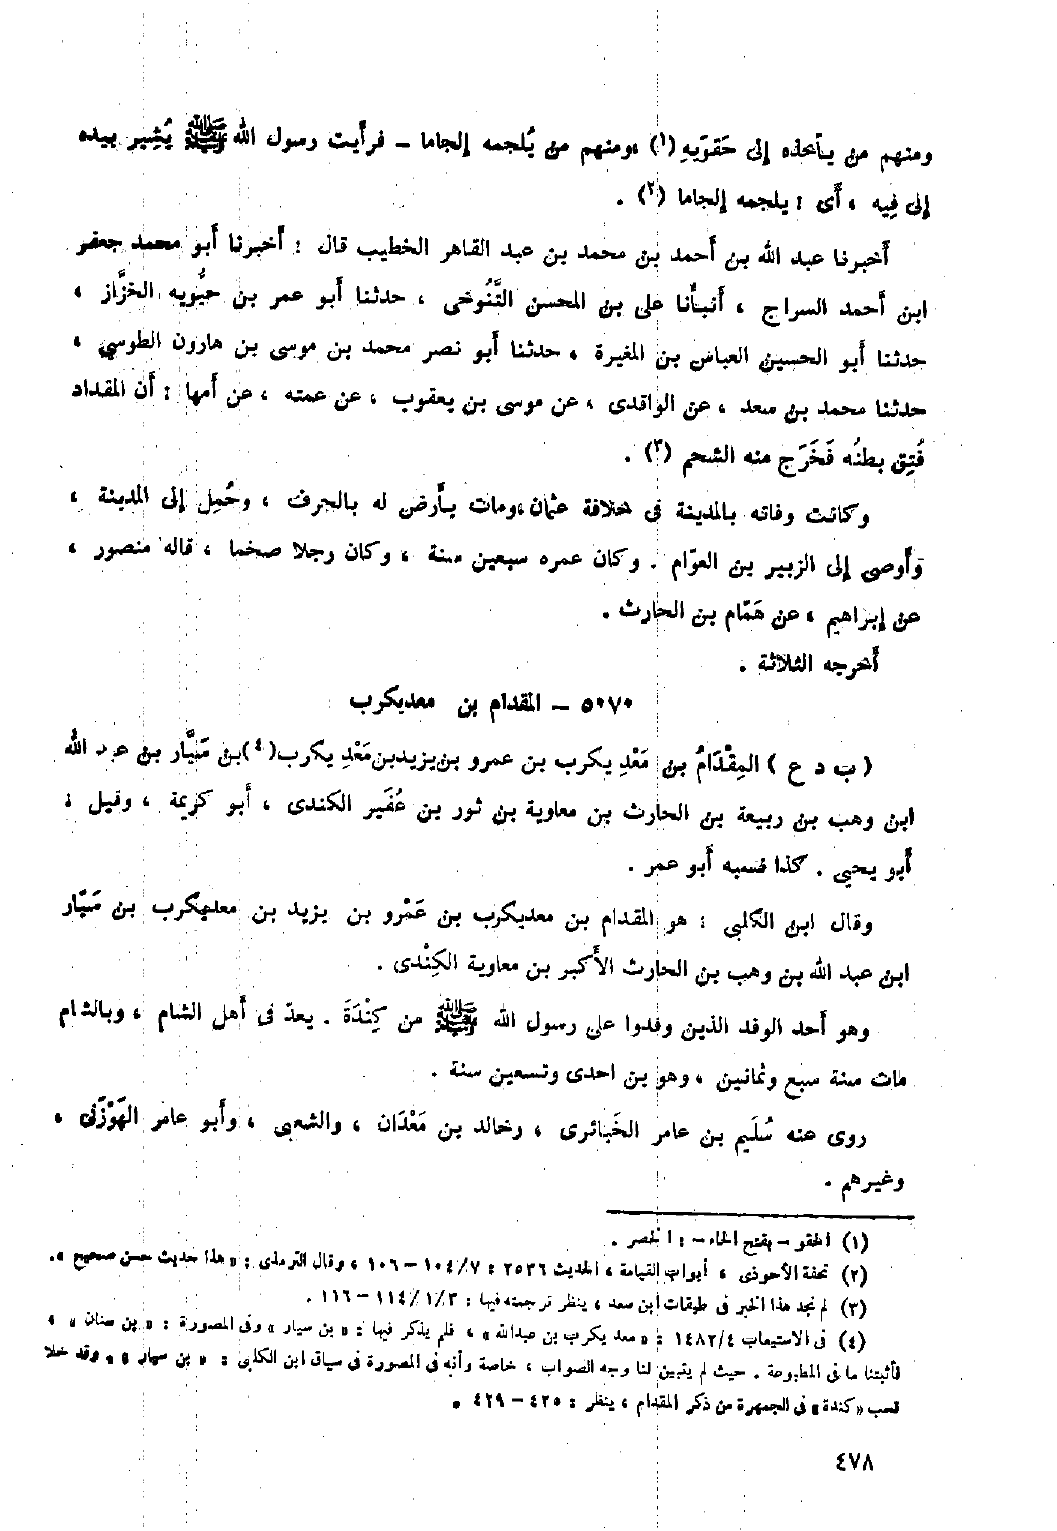 ومنهم من يأخذه إلى حَقوَيهِ (١) ،ومنهم من يُلجمه إلجاما – فرأَيت رسول الله ﷺ يُشِير بيده
إلى فِيه ، أَى : يلجمه إلجاما (٢) .
أَخبرنا عبد الله بن أَحمد بن محمد بن عبد القاهر الخطيب قال : أَخبرنا أَبو محمد جعفر
ابن أَحمد السراج ، أَنبأَنا على بن المحسن التَّنُوخى ، حدثنا أَبو عمر بن حيُّويه الخزَّاز ،
حدثنا أَبو الحسين العباس بن المغيرة ، حدثنا أَبو نصر محمد بن موسى بن هارون الطوسي ،
حدثنا محمد بن سعد ، عن الواقدى ، عن موسى بن يعقوب ، عن عمته ، عن أَمها : أَن المقداد
فُتِق بطنُه فَخَرَج منه الشحم (٣) .
وكانت وفاته بالمدينة فى خلافة عثمان،ومات بأَرض له بالجرف ، وحُمِل إلى المدينة ،
وأَوصى إلى الزبير بن العوّام . وكان عمره سبعين سنة ، وكان رجلا ضخما ، قاله منصور ،
عن إبراهيم ، عن هَمّام بن الحارث .
أَخرجه الثلاثة .
٥٠٧٠ – المقدام بن معديكرب
( ب د ع ) المِقْدَامُ بن مَعْدِ يكرب بن عمرو بن يزيد بن مَعْدِ يكرب(٤)بن سَيَّار بن عبد الله
ابن وهب بن ربيعة بن الحارث بن معاوية بن ثور بن عُفَير الكندى ، أَبو كريمة ، وقيل :
أَبو يحيى . كذا نسبه أَبو عمر .
وقال ابن الكلبي : هو المقدام بن معديكرب بن عَمْرو بن يزيد بن معديكرب بن سَيّار
ابن عبد الله بن وهب بن الحارث الأَكبر بن معاوية الكِنْدى .
وهو أَحد الوفد الذين وفدوا على رسول الله ﷺ من كِنْدَةَ . يعدّ فى أَهل الشام ، وبالشام
مات سنة سبع وثمانين ، وهو بن احدى وتسعين سنة .
روى عنه سُلَيم بن عامر الخَبائرى ، وخالد بن مَعْدَان ، والشعبى ، وأَبو عامر الهَوْزَنى ،
وغيرهم .
(١) الحقو – بفتح الحاء – : الخصر .
(٢) تحفة الأحوذى ، أبواب القيامة ، الحديث ٢٥٣٦ : ١٠٤/٧ – ١٠٦ ، وقال الترمذى : « هذا حديث حسن صحيح » .
(٣) لم نجد هذا الخبر فى طبقات ابن سعد ، ينظر ترجمته فيها : ١١٤/١/٣ – ١١٦ .
(٤) فى الاستيعاب ١٤٨٢/٤ : « معد يكرب بن عبدالله » ، فلم يذكر فيها : « بن سيار » وفى المصورة : « بن سنان » ،
فأثبتنا ما فى المطبوعة . حيث لم يتبين لنا وجه الصواب ، خاصة وأنه فى المصورة فى سياق ابن الكلبى : « بن سيار » ، وقد خلا
نسب «كندة» فى الجمهرة من ذكر المقدام ، ينظر : ٤٢٥ – ٤٢٩ .
٤٧٨